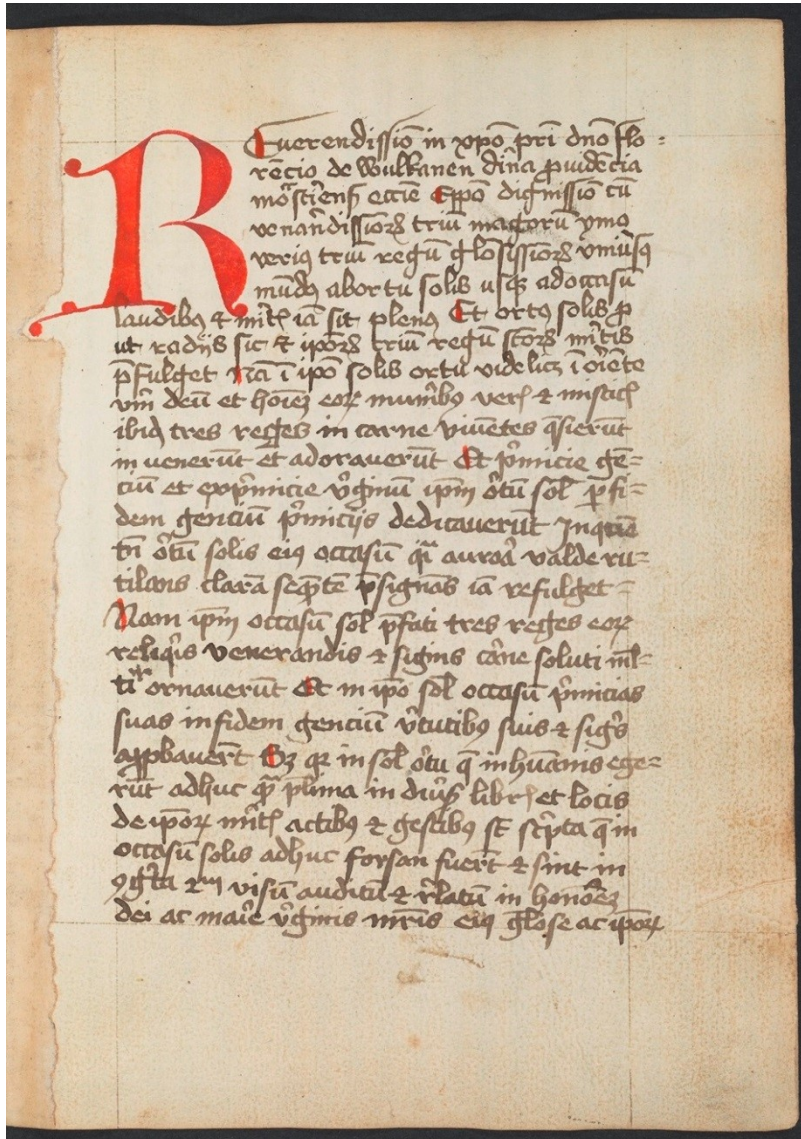 Reuerendissīo in xpō pri dn̄o flo-
rēcio de woulkanen diīna ꝓuidēcia
mōstiens̄ eccīe Epō dignissīo cū
venandissioꝝ triū magorū ymo
veriꝰ triū regū glōsissioꝝ vniūsꝰ
mūdꝰ ab ortu solis usqꝫ ad occasū
laudibꝰ ⁊ mītꝭ iā sit plenꝰ Et ortꝰ solis ꝓ
ut radijs sic ⁊ ipōꝝ triū regū sc̄oꝝ mītis
p̄fulget nā ī ipō solis ortu videlicꝫ ī oriēte
vm̄ deū et hoīeꝫ eoꝝ munībꝰ verꝭ ⁊ mistic̄
ibiqꝫ tres reges in carne viuentes q̄sierūt
in uenerūt et adorauerūt Et p̄micie gē-
ciū et exp̄micie v̄ginū ipm̄ ortū sol̄ ꝑ fi-
dem genciū p̄micijs dedicauerūt
tn̄ ortū solis eiꝰ occasū qr̄ auroā valde ru-
tilans clarā seq̄ntē p̄signās iā refulget-
Nam ipm̄ occasū sol̄ p̄fati tres reges eoꝝ
reliq̄is venerandis ⁊ signis carne soluti ml̄-
tiꝑlr ornauerūt Et in ipō sol̄ occasū p̄micias
suas in fidem genciū v̄tutibꝰ suis ⁊ sigīs
apꝓbauer̄t Sꝫ qꝛ in sol̄ ortu q̄ in hūanis ege-
rūt adhuc qͣ plīma in diūs̄ librꝭ et locis
de ipōꝝ mītꝭ actibꝰ ⁊ gestibꝰ sū sc̄pta q̄ in
occasū solis adhuc forsan fuer̄t ⁊ sint in
ꝯgīta visū auditū ⁊ rl̄atū in honoreꝫ
dei ac marīe v̄ginis mr̄is eiꝰ gl̄ose ac ipōꝝ